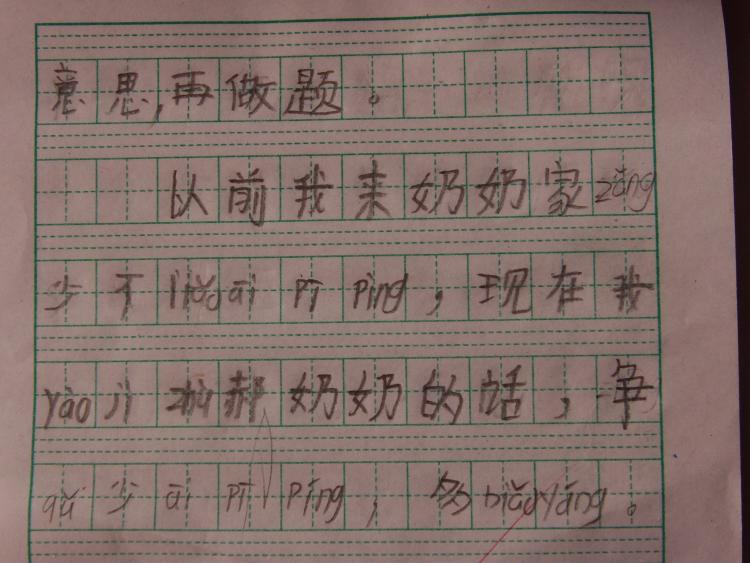 意思,再做题。
以前我来奶奶家zǎng
少不liǎoāi pī ping，现在我
yào jì zhù 郝奶奶的话，争
qǔ 少 āi pī píng，多biǎoyáng。